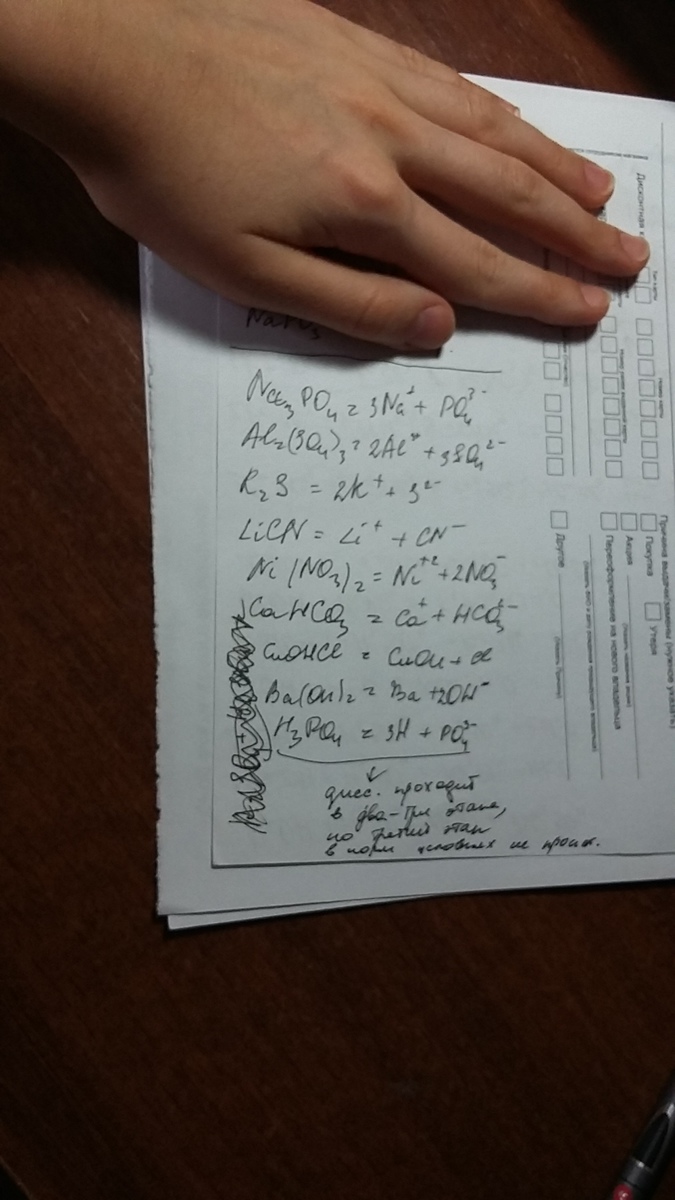 Na₃PO₄ = 3Na⁺ + PO₄³⁻
Al₂(SO₄)₃ = 2Al⁺ + 3SO₄²⁻
K₂S = 2K⁺ + S²⁻
LiCN = Li⁺ + CN⁻
Ni(NO₃)₂ = Ni⁺² + 2NO₃⁻
CaHCO₃ = Ca⁺ + HCO₃⁻
CuOHCl = CuOH + Cl
Ba(OH)₂ = Ba + 2OH⁻
H₃PO₄ = 3H + PO₄³⁻
↓
дисс. проходит
в два-три этапа,
но третий этап
в норм условиях не
Дисконтная
Тип карты
Номер карты
Причина выдачи/замены (нужное указать)
Покупка
Утеря
Акция
Переоформление на нового владельца
Другое